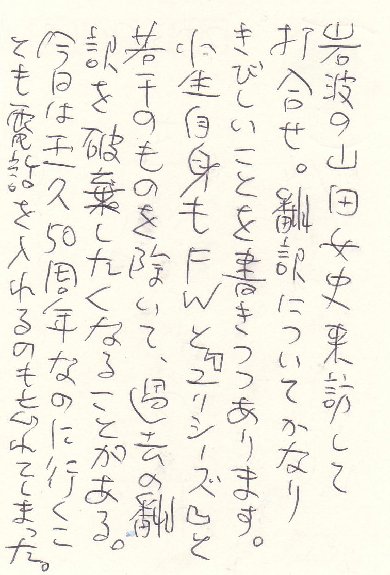 岩波の山田女史来訪して
打合せ。翻訳についてかなり
きびしいことを書きつつあります。
小生自身もFWと『ユリシーズ』と
若干のものを除いて、過去の翻
訳を破棄したくなることがある。
今日は玉久50周年なのに行くこ
とも電話を入れるのも忘れてしまった。